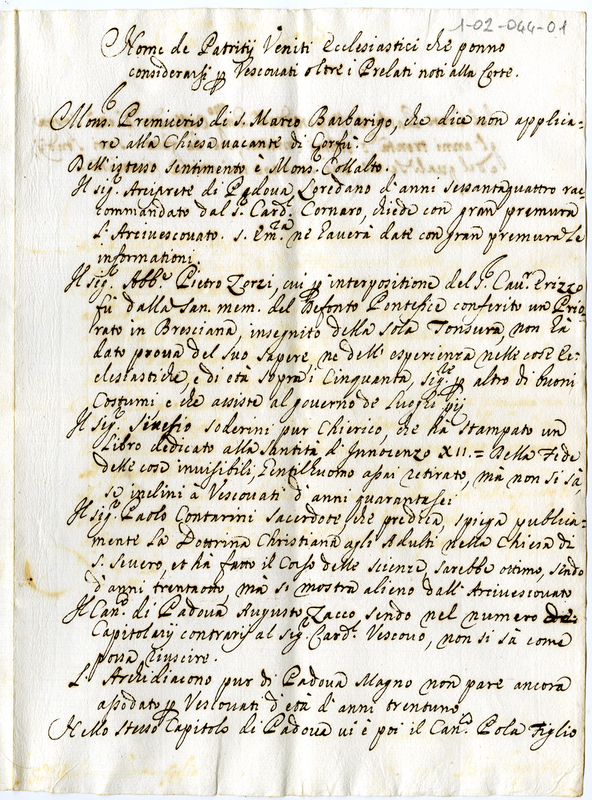 1-02-044-01
Nome de Patritij Veniti Ecclesiastici che ponno
considerarsi p Vescovati oltre i Prelati noti alla Corte.
Mons.r Premicerio di S. Marco Barbarigo, che dice non applica=
re alla Chiesa vacante di Corfù.
Dell'istesso sentimento è Mons.r Collalto.
Il sig.r Arciprete di Padova Loredano d'anni sessantaquattro rac=
commandato dal S.r Card.l Cornaro, chiede con gran premura
l'Arcivescovato. S. Em.za ne haverà date con gran premura le
informationi.
Il sig.r Abb.e Pietro Zorzi, cui p interpositione del S.r Cav.r Erizzo
fù dalla san. mem. del Defonto Pontefice conferito un Prio
rato in Bresciana, insegnito della sola Tonsura, non hà
dato prova del suo sapere, ne dell'esperienza nelle cose Ec=
clesiastiche, è di età sopra i Cinquanta, sig.re p altro di buoni
Costumi, e che assiste al governo de luoghi pij
Il sig.r Sinesio Soderini pur Chierico, che hà stampato un
libro dedicato alla Santità d'Innocenzo XII.= Della Fede
delle cose invisibili, gentilhuomo assai retirato, mà non si sà,
se inclini à Vescovati d'anni quarantasei
Il sig.r Paolo Contarini sacerdote che predica, spiega publica=
mente la Dottrina Christiana agli Adulti nella Chiesa di
S. Severo, et hà fatto il Corso delle scienze, sarebbe ottimo, sendo
d'anni trentaotto, mà si mostra alieno dall'Arcivescovato
Il Can.co di Padova Augusto Zacco sendo nel numero de
Capitolarij contrarij al sig.r Card.l Vescovo, non si sà come
possa riuscire.
L'Archidiacono pur di Padova Magno non pare ancora
assodato p Vescovati d'età d'anni trentuno
Nello stesso Capitolo di Padova vi è poi il Can.co Pola Figlio